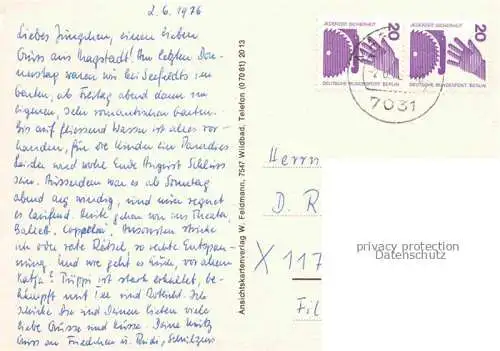 2.6.1976
Liebes Jungchen, einen lieben
Gruss aus Magstadt! Am letzten Don-
nerstag waren wir bei Seefeldts im
Garten, ab Freitag abend dann im
eigenen, sehr romantischen Garten.
Bis auf fliessend Wasser ist alles vor-
handen, für die Kinder ein Paradies
Leider wird wohl Ende August Schluss
sein. Ausserdem war es ab Sonntag
abend arg windig, und nun regnet
es laufend. Heute gehen wir ins Theater,
Ballett, Coppelia. Ansonsten stricke
ich oder rate Rätsel, so rechte Entspan-
nung. Und wie geht es Euch, vor allem
Katja? Püppi ist stark erkältet, be-
kämpft mit Tee und Rotlicht. Ich
drücke Dir und Deinen Lieben viele
liebe Grüsse und Küsse. Deine
Gruss an Friedchen u. Rudi,
Ansichtskartenverlag W. Feldmann, 7547 Wildbad, Telefon (0 70 81) 20 13
JEDERZEIT SICHERHEIT
20
DEUTSCHE BUNDESPOST BERLIN
JEDERZEIT SICHERHEIT
20
DEUTSCHE BUNDESPOST BERLIN
7031
Herrn
D. R
X 117
Fil
privacy protection
Datenschutz